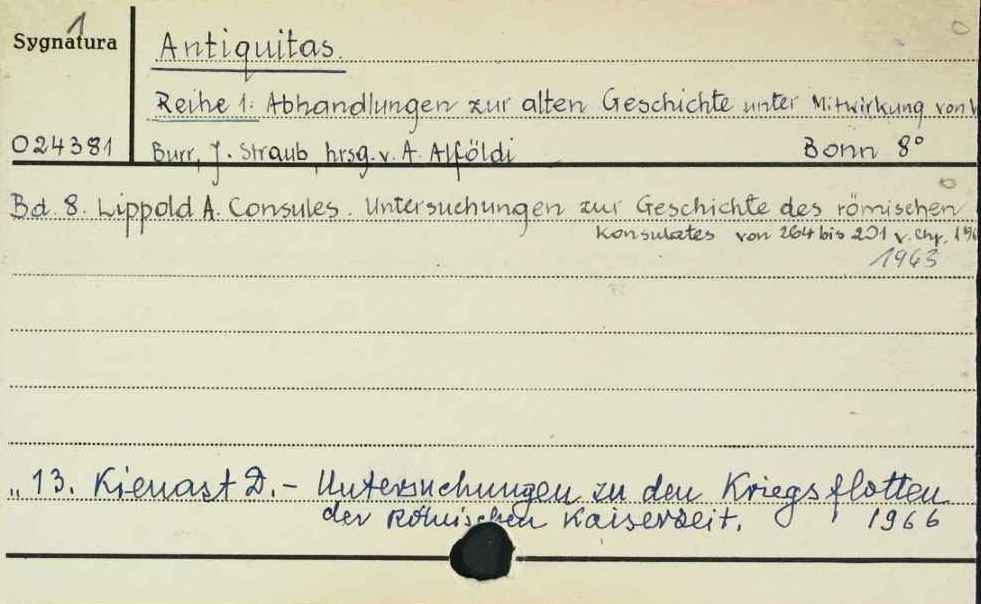 1
Sygnatura
Antiquitas.
Reihe 1: Abhandlungen zur alten Geschichte unter Mitwirkung von
024381
Burr, J. Straub, hrsg. v. A. Alföldi Bonn 8°
Bd. 8. Lippold A. Consules. Untersuchungen zur Geschichte des römischen
Konsulates von 264 bis 201 v. Chr.
1963
„ 13. Kienast D. - Untersuchungen zu den Kriegsflotten
der Römischen Kaiserzeit. 1966